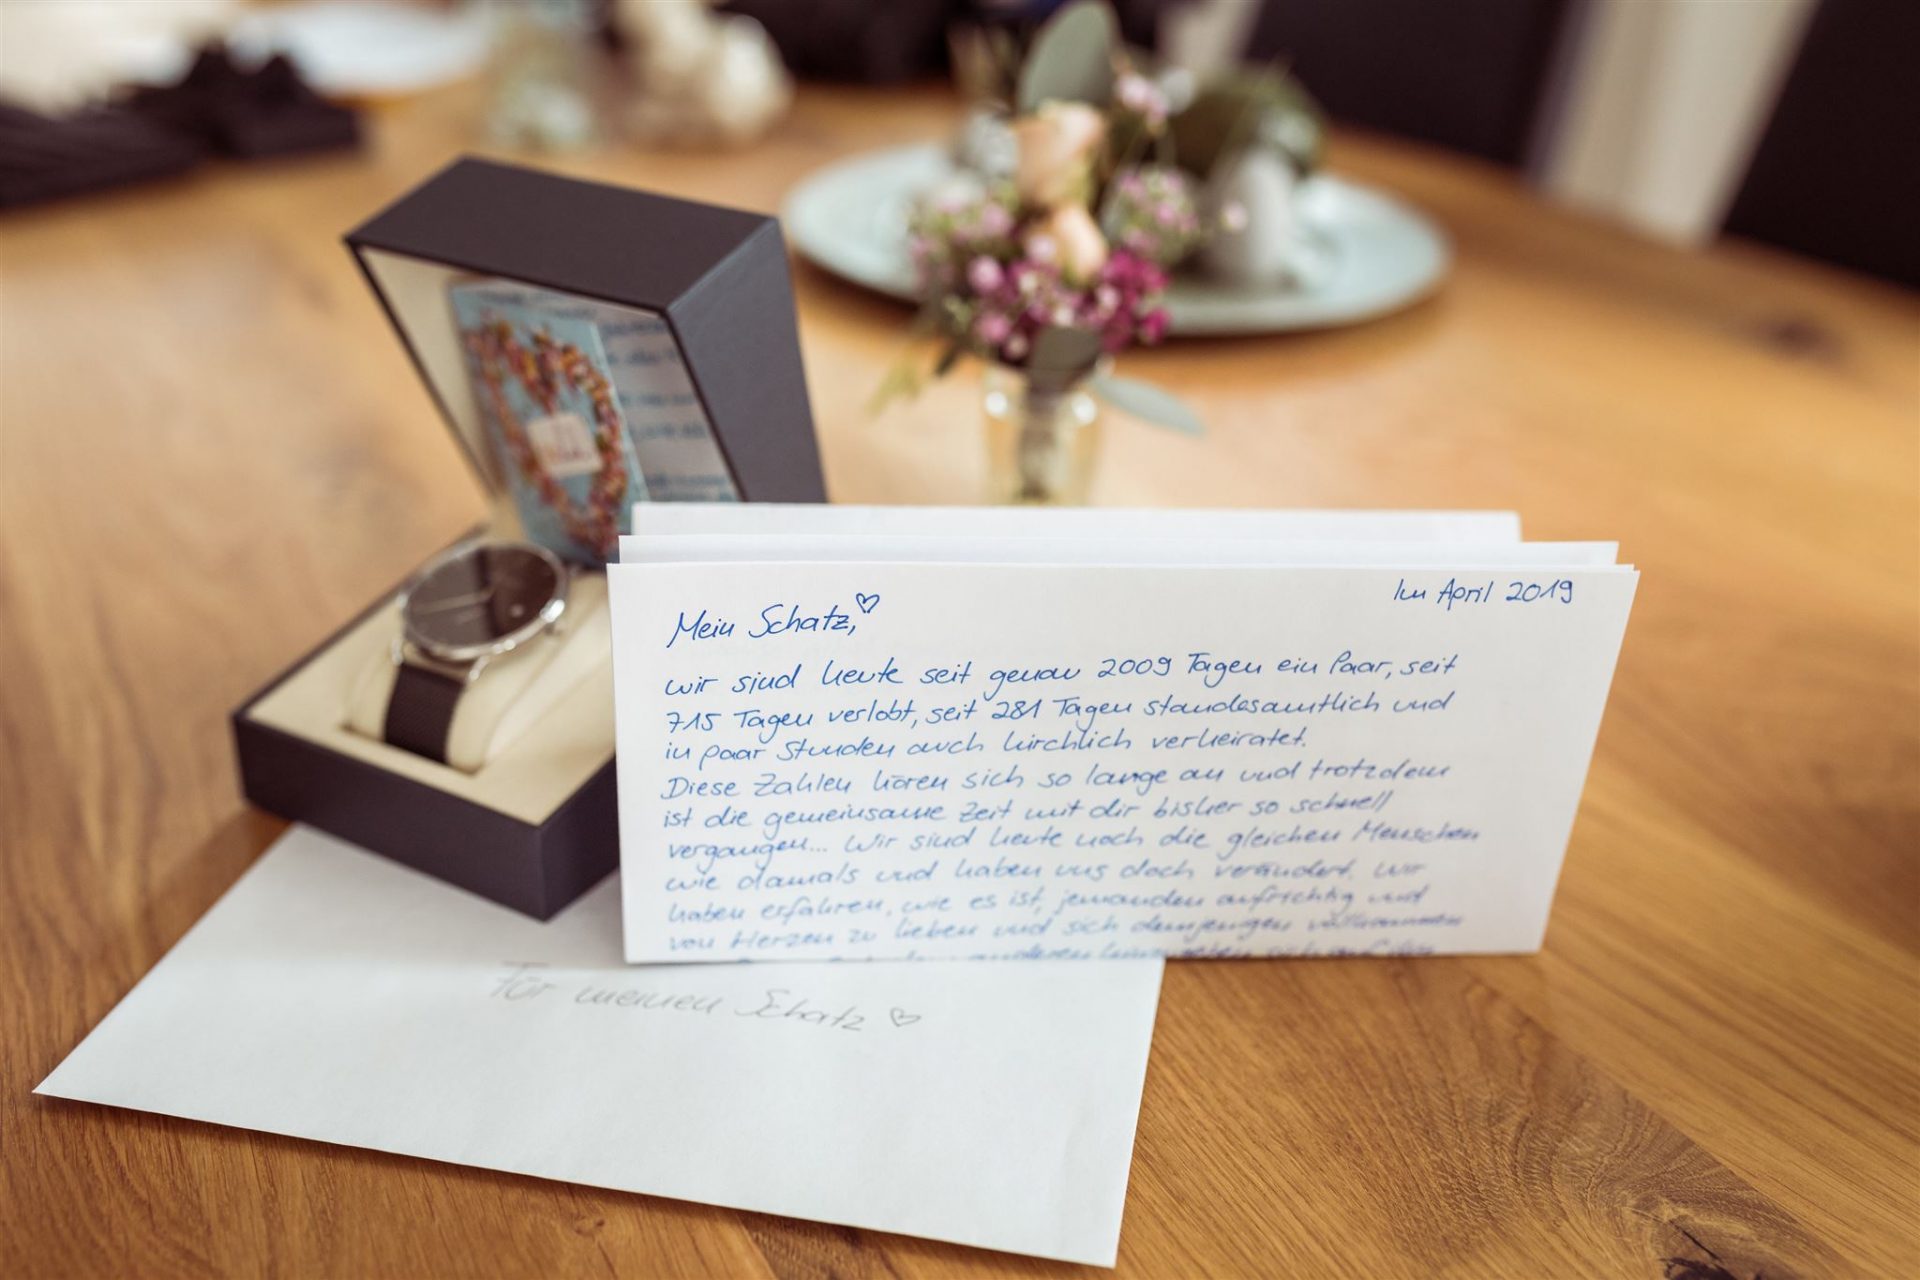 Im April 2019
Mein Schatz,♡
wir sind heute seit genau 2009 Tagen ein Paar, seit
715 Tagen verlobt, seit 281 Tagen standesamtlich und
in paar Stunden auch kirchlich verheiratet.
Diese Zahlen hören sich so lange an und trotzdem
ist die gemeinsame Zeit mit dir bisher so schnell
vergangen... Wir sind heute noch die gleichen Menschen
wie damals und haben uns doch verändert. Wir
haben erfahren, wie es ist, jemanden aufrichtig und
von Herzen zu lieben und sich demjenigen vollkommen
Für meinen Schatz ♡